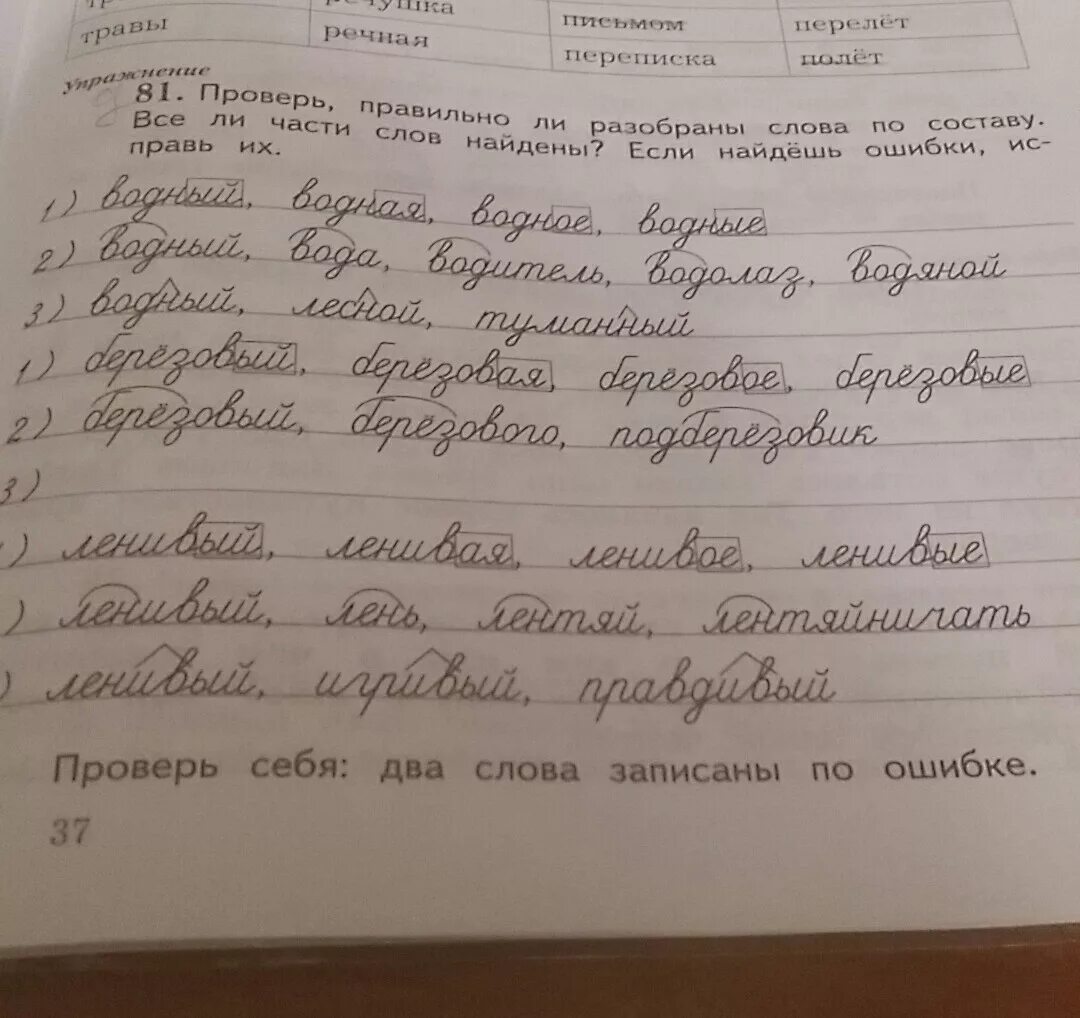 травы речная письмом перелёт
переписка полёт
упражнение
81. Проверь, правильно ли разобраны слова по составу.
Все ли части слов найдены? Если найдёшь ошибки, ис-
правь их.
1) водный, водная, водное, водные
2) водный, вода, водитель, водолаз, водяной
3) водный, лесной, туманный
1) берёзовый, берёзовая, берёзовое, берёзовые
2) берёзовый, берёзового, подберёзовик
3)
) ленивый, ленивая, ленивое, ленивые
) ленивый, лень, лентяй, лентяйничать
) ленивый, игривый, правдивый
Проверь себя: два слова записаны по ошибке.
37